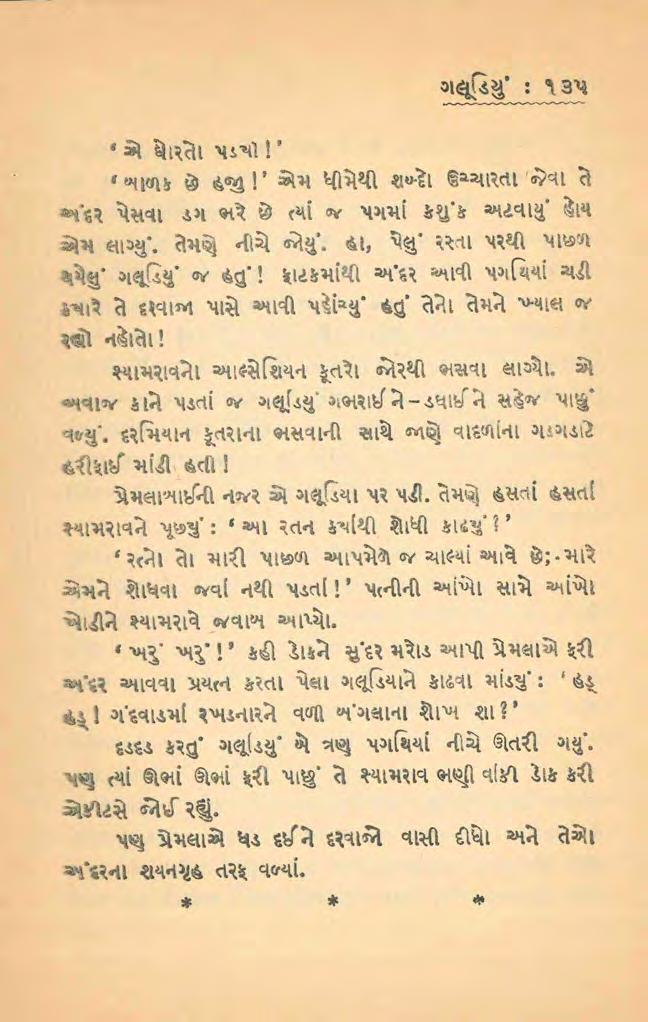 ગલૂડિયું : ૧૩૫
‘એ ઘોરતો પડયો !’
‘બાળક છે હજી !’ એમ ધીમેથી શબ્દો ઉચ્ચારતા જેવા તે
અંદર પેસવા ડગ ભરે છે ત્યાં જ પગમાં કશુંક અટવાયું હોય
એમ લાગ્યું. તેમણે નીચે જોયું. હા, પેલું રસ્તા પરથી પાછળ
થયેલું ગલૂડિયું જ હતું ! ફાટકમાંથી અંદર આવી પગથિયાં ચડી
કયારે તે દરવાજા પાસે આવી પહોંચ્યું હતું તેનો તેમને ખ્યાલ જ
રહ્યો નહોતો !
શ્યામરાવનો આલ્સેશિયન કૂતરો જોરથી ભસવા લાગ્યો. એ
અવાજ કાને પડતાં જ ગલૂડિયું ગભરાઈને–ડઘાઈને સહેજ પાછું
વળ્યું. દરમિયાન કૂતરાના ભસવાની સાથે જાણે વાદળાંના ગડગડાટે
હરીફાઈ માંડી હતી !
પ્રેમલાબાઈની નજર એ ગલૂડિયા પર પડી. તેમણે હસતાં હસતાં
શ્યામરાવને પૂછયું : ‘આ રતન કયાંથી શોધી કાઢયું ?’
‘રત્નો તો મારી પાછળ આપમેળે જ ચાલ્યાં આવે છે; મારે
એમને શોધવા જવાં નથી પડતાં !’ પત્નીની આંખો સામે આંખો
ખોડીને શ્યામરાવે જવાબ આપ્યો.
‘ખરું ખરું !’ કહી ડોકને સુંદર મરોડ આપી પ્રેમલાએ ફરી
અંદર આવવા પ્રયત્ન કરતા પેલા ગલૂડિયાને કાઢવા માંડયું : ‘હડ્
હડ્ ! ગંદવાડમાં રખડનારને વળી બંગલાના શોખ શા ?’
દડદડ કરતું ગલૂડિયું બે ત્રણ પગથિયાં નીચે ઊતરી ગયું.
પણ ત્યાં ઊભાં ઊભાં ફરી પાછું તે શ્યામરાવ ભણી વાંકી ડોક કરી
એકીટસે જોઈ રહ્યું.
પણ પ્રેમલાએ ધડ દઈને દરવાજો વાસી દીધો અને તેઓ
અંદરના શયનગૃહ તરફ વળ્યાં.
* * *